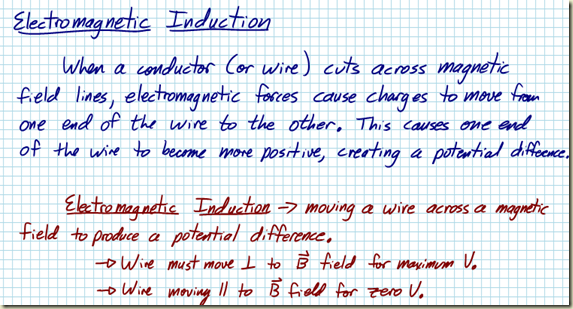 Electromagnetic Induction
When a conductor (or wire) cuts across magnetic
field lines, electromagnetic forces cause charges to move from
one end of the wire to the other. This causes one end
of the wire to become more positive, creating a potential difference.
Electromagnetic Induction → moving a wire across a magnetic
field to produce a potential difference.
→ Wire must move ⊥ to B⃗ field for maximum V.
→ Wire moving || to B⃗ field for zero V.